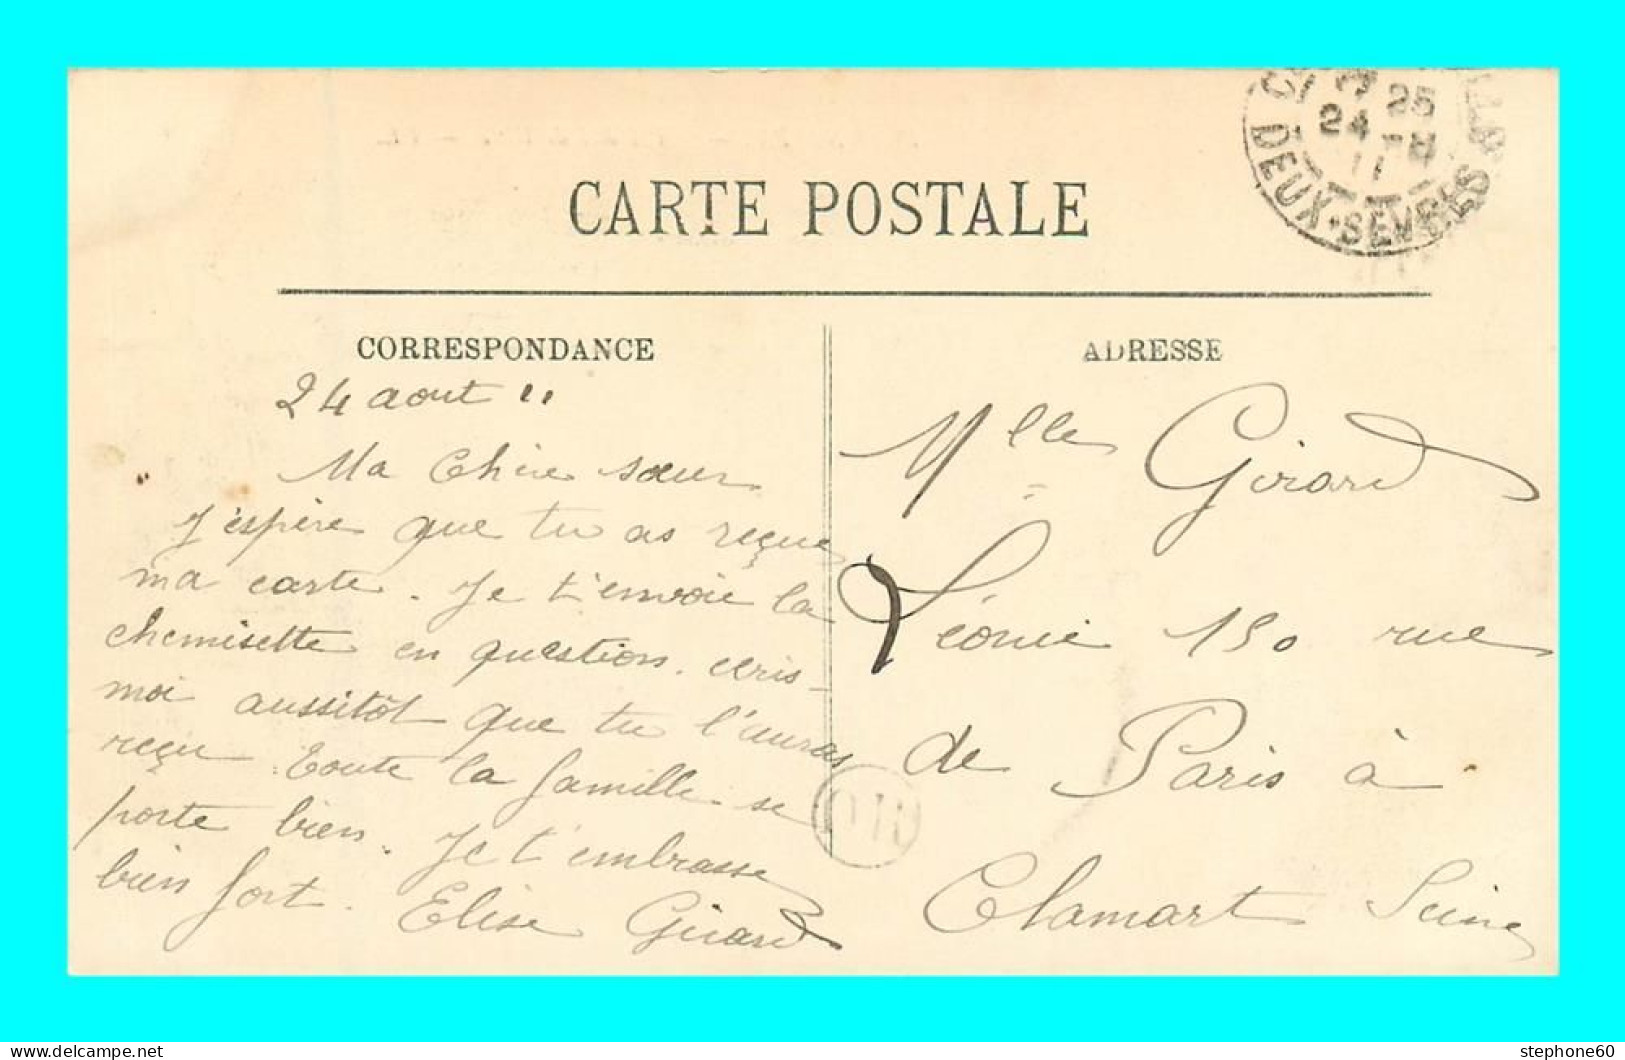 CARTE POSTALE
25
24 -8
11
DEUX-SEVRES
CORRESPONDANCE
24 aout 11
Ma Chère sœur
J'espère que tu as reçue
ma carte. Je t'envoie la
chemisette en question. ecris-
moi aussitôt que tu l'auras
reçu toute la famille se
porte bien. Je t'embrasse
bien fort. Elise Girard
ADRESSE
Mlle Girard
Léonie 150 rue
de Paris à
Clamart Seine
OR
delcampe.net
stephone60